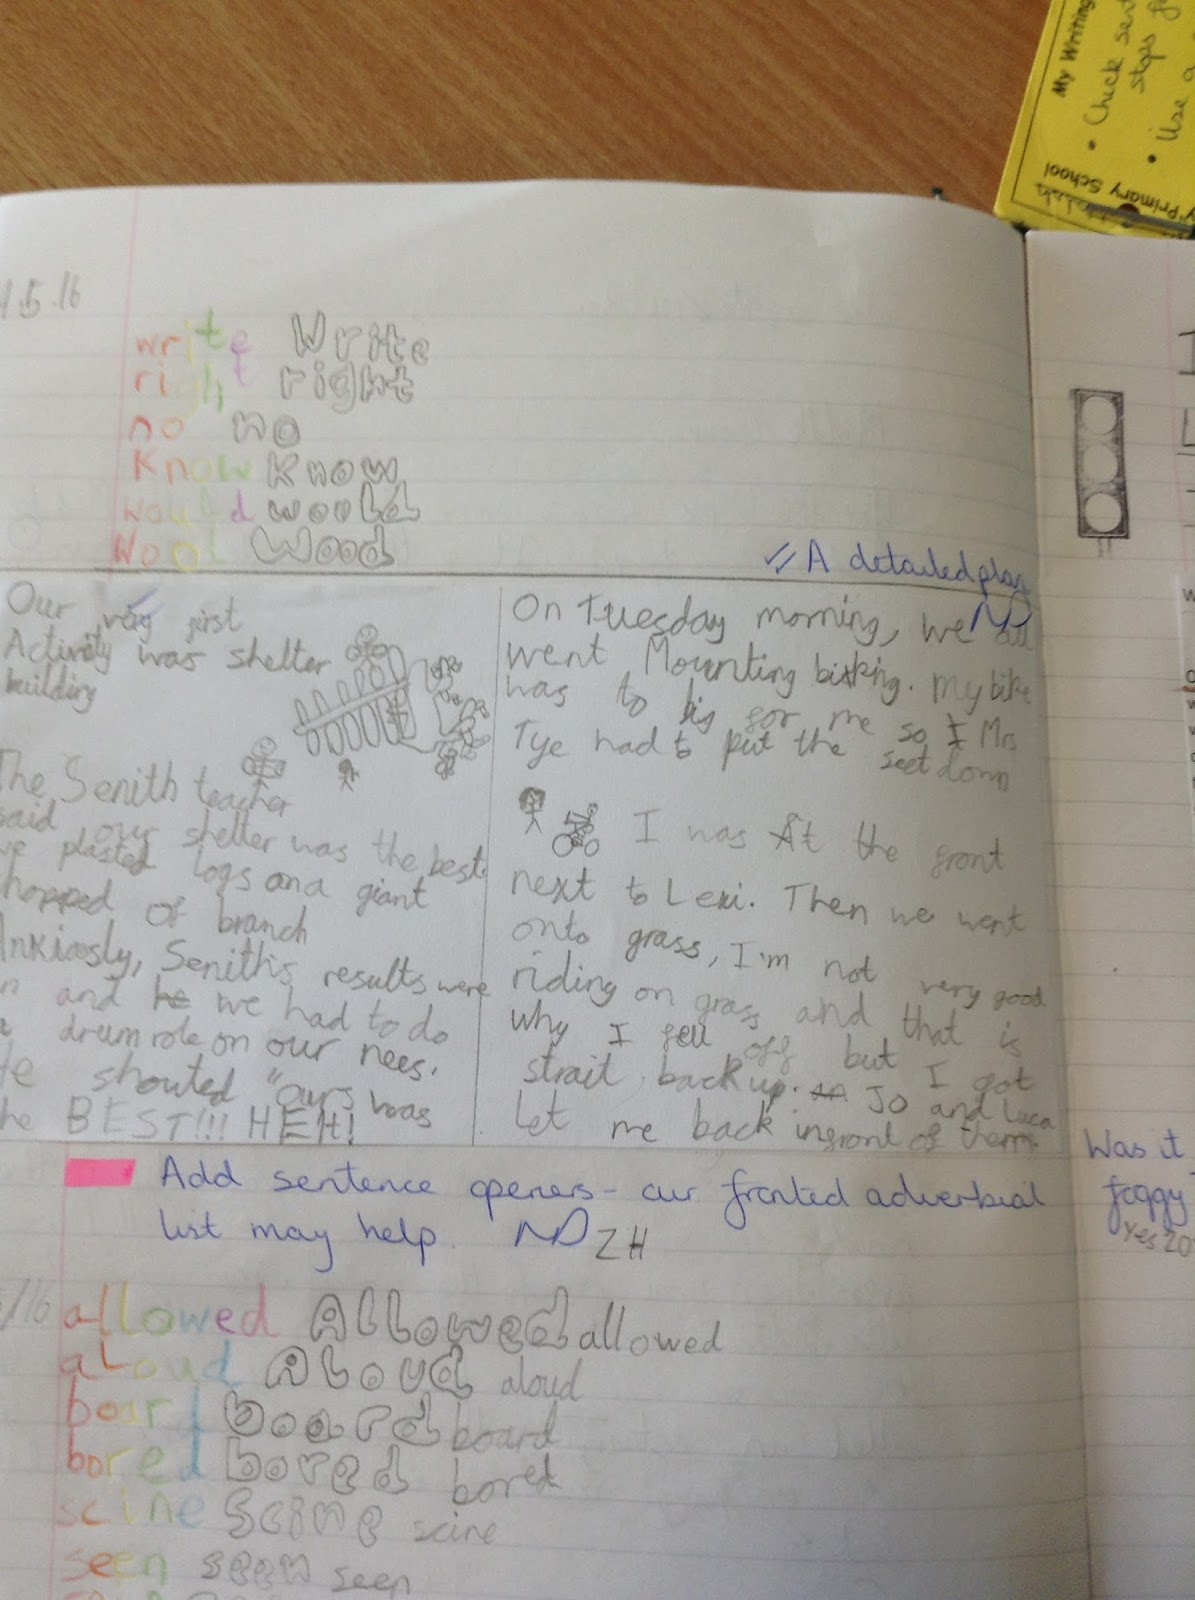 My Writing
• Check sent
stops fo
• Use a
Primary School
1.5.16
write Write
right right
no no
know know
would would
Wood Wood
A detailed play
Our very first
Activity was shelter
building
The Senith teacher
said our shelter was the best
we plasted logs on a giant
chopped of branch
Anxiosly, Senith's results were
in and he we had to do
a drum role on our nees.
He shouted "ours was
the BEST!!! HEH!
On Tuesday morning, we all
went Mounting biking. My bike
was to big for me so I Mrs
Tye had to put the seet down
I was At the front
next to Lexi. Then we went
onto grass, I'm not very good
riding on grass and that is
why I fell off but I got
strait back up. Jo and Luca
Let me back infront of them.
Add sentence openers - our fronted adverbial
list may help. ND ZH
/16
allowed Allowed allowed
aloud Aloud aloud
board board board
bored bored bored
scine Scine scine
seen seen seen
Was it
foggy
Yes 20